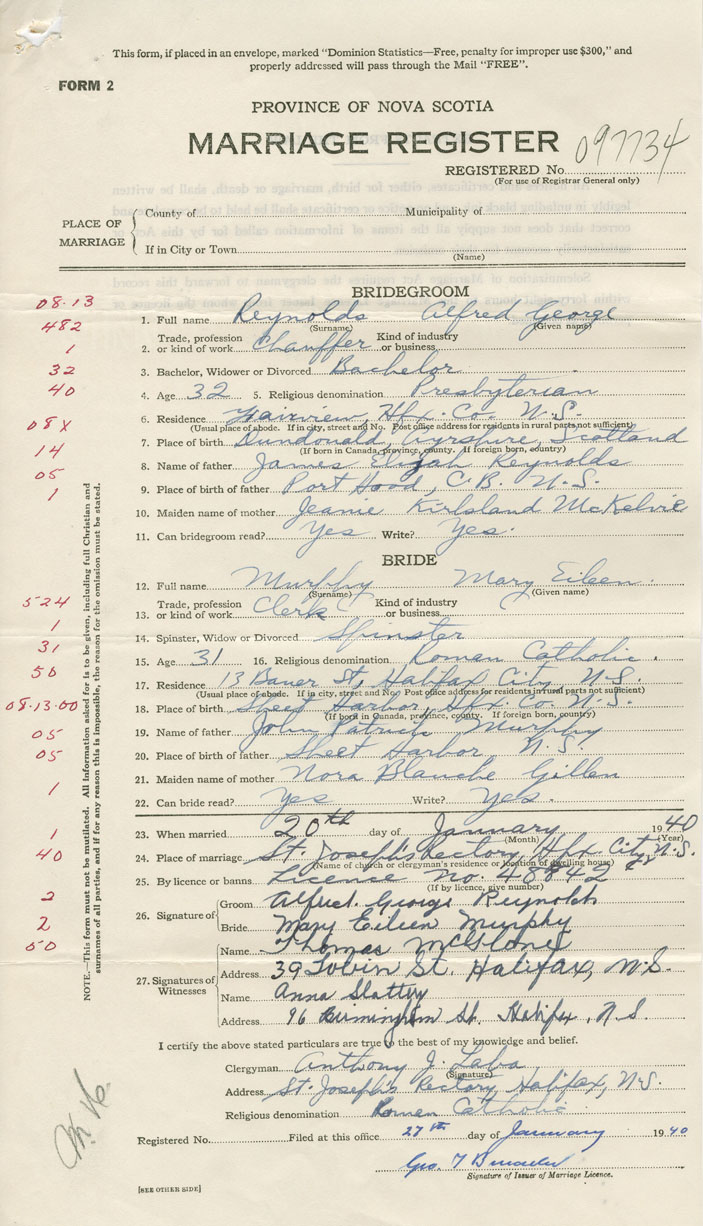 This form, if placed in an envelope, marked "Dominion Statistics—Free, penalty for improper use $300," and
properly addressed will pass through the Mail "FREE".
FORM 2
PROVINCE OF NOVA SCOTIA
MARRIAGE REGISTER
097734
REGISTERED No.
(For use of Registrar General only)
PLACE OF MARRIAGE
County of Municipality of
If in City or Town
(Name)
BRIDEGROOM
08·13
1. Full name Reynolds Alfred George
(Surname) (Given name)
482
Trade, profession Kind of industry
2. or kind of work Chauffer or business
1
3. Bachelor, Widower or Divorced Bachelor
32
4. Age 32 5. Religious denomination Presbyterian
40
6. Residence Fairview, Hfx. Co. N.S.
(Usual place of abode. If in city, street and No. Post office address for residents in rural parts not sufficient)
08X
7. Place of birth Dundonald, Ayrshire, Scotland
(If born in Canada, province, county. If foreign born, country)
14
8. Name of father James Elijah Reynolds
05
9. Place of birth of father Port Hood, C.B. N.S.
1
10. Maiden name of mother Jeanie Kirkland McKelvie
11. Can bridegroom read? Yes Write? Yes.
BRIDE
12. Full name Murphy Mary Eileen.
(Surname) (Given name)
524
Trade, profession Kind of industry
13. or kind of work Clerk or business
1
14. Spinster, Widow or Divorced Spinster
31
15. Age 31 16. Religious denomination Roman Catholic.
50
17. Residence 13 Bauer St, Halifax City, N.S.
(Usual place of abode. If in city, street and No. Post office address for residents in rural parts not sufficient)
08·13·00
18. Place of birth Sheet Harbor, Hfx. Co. N.S.
(If born in Canada, province, county. If foreign born, country)
05
19. Name of father John Patrick Murphy
05
20. Place of birth of father Sheet Harbor, N.S.
1
21. Maiden name of mother Nora Blanche Gillen
22. Can bride read? Yes Write? Yes.
1
23. When married 20th day of January 1940
(Month) (Year)
40
24. Place of marriage St. Joseph's Rectory, Hfx City, N.S.
(Name of church or clergyman's residence or location of dwelling house)
25. By licence or banns Licence No. 48842
(If by licence, give number)
2
26. Signature of
Groom Alfred George Reynolds
2
Bride Mary Eileen Murphy
50
27. Signatures of Witnesses
Name Thomas
Address 39 Tobin St. Halifax, N.S.
Name Anna Slattery
Address 96 Birmingham St. Halifax, N.S.
NOTE.—This form must not be mutilated. All information asked for is to be given, including full Christian and
surnames of all parties, and if for any reason this is impossible, the reason for the omission must be stated.
I certify the above stated particulars are true to the best of my knowledge and belief.
Clergyman Anthony J. Laba
(Signature)
Address St. Joseph's Rectory, Halifax, N.S.
Religious denomination Roman Catholic
Registered No. Filed at this office 27th day of January 1940
Geo. T
Signature of Issuer of Marriage Licence.
[SEE OTHER SIDE]